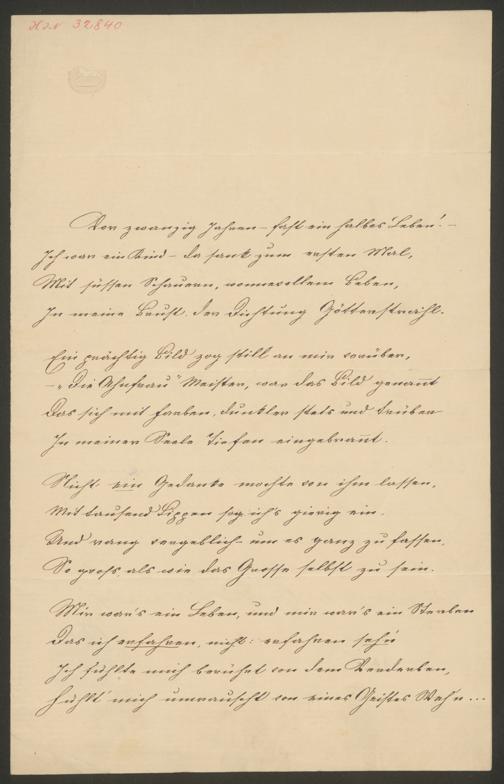 H.I.N. 32840
Vor zwanzig Jahren – fast ein halbes Leben! –
Ich war ein Kind – da sank zum ersten Mal,
Mit süssen Schauern, wonnevollem Beben,
In meine Brust der Dichtung Götterstrahl.
Ein prächtig Bild zog still an mir vorüber,
– „Die Ahnfrau" Meister, war das Bild genannt
Das sich mit Farben, dunkler stets und trüber
In meiner Seele Tiefen eingebrannt.
Nicht ein Gedanke mochte von ihm lassen,
Mit tausend Lippen sog ich's gierig ein.
Und rang vergeblich um es ganz zu fassen,
So gross als wie das Grosse selbst zu sein.
Mir war's ein Leben, und mir war's ein Sterben
Das ich erfahren, nicht: erfahren seh'n
Ich fühlte mich berührt von dem Verderben,
Fühlt mich umrauscht von eines Geistes Weh'n ...